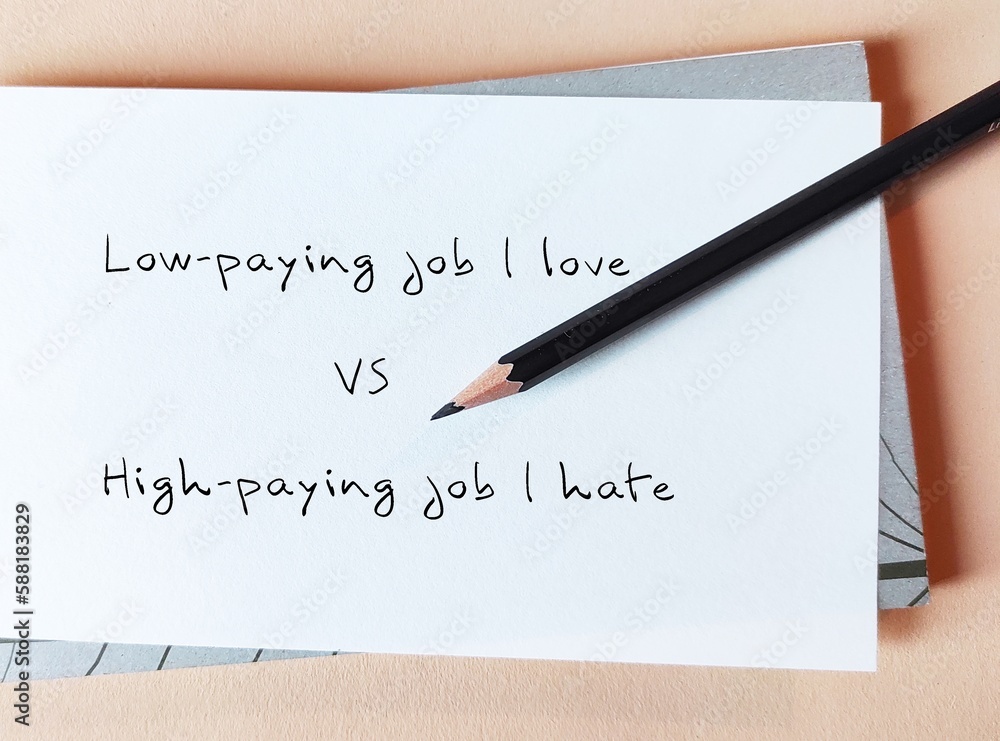 Low-paying job I love
VS
High-paying job I hate
Adobe Stock | #588183829